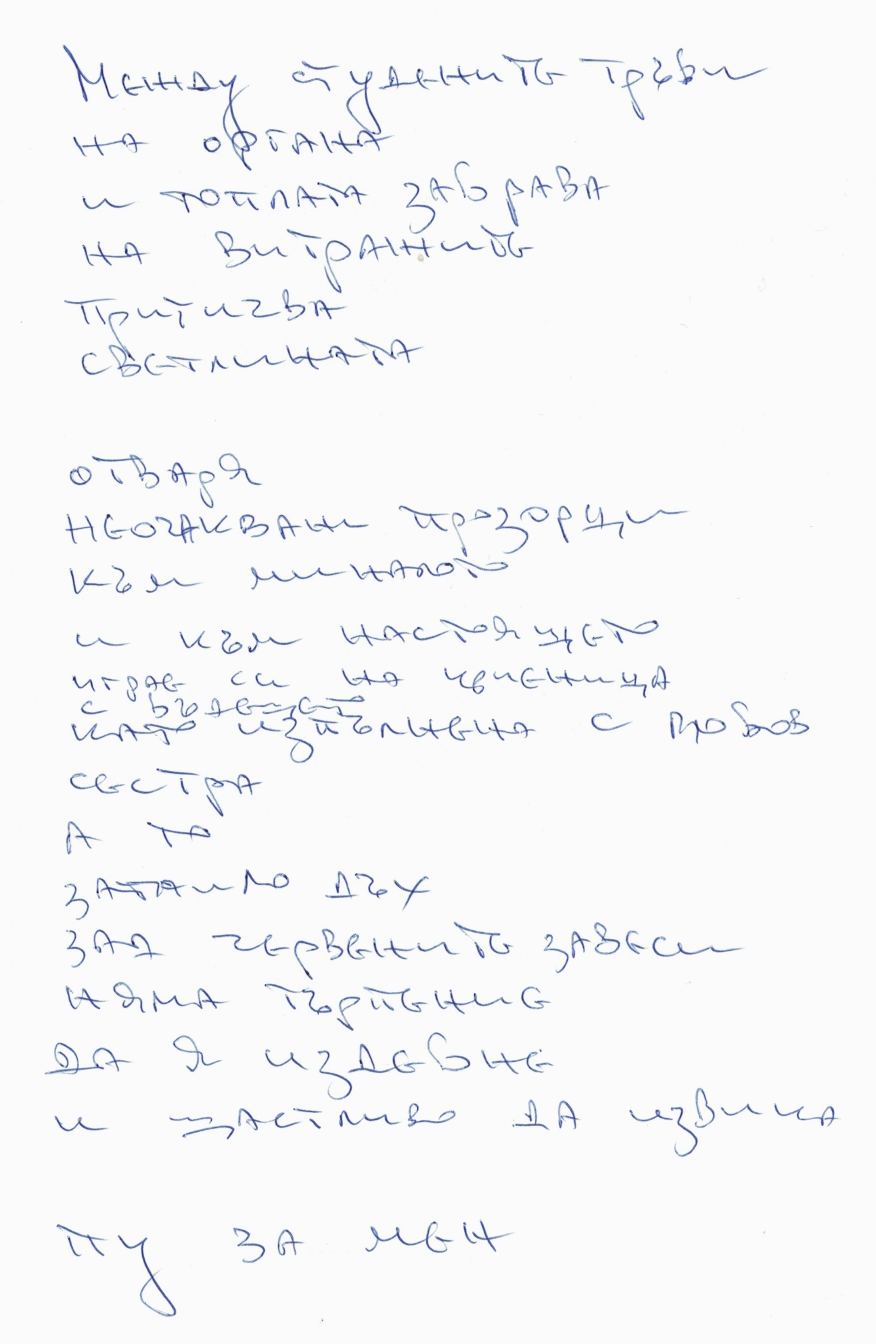 Между студените тръби
на органа
и топлата забрава
на витражите
притичва
светлината
отваря
неочаквани прозорци
към миналото
и към настоящето
играе си на криеница
с бъдещето
като изпълнена с любов
сестра
а то
затаило дъх
зад червените завеси
няма търпение
да я издебне
и щастливо да извика
пу за мен